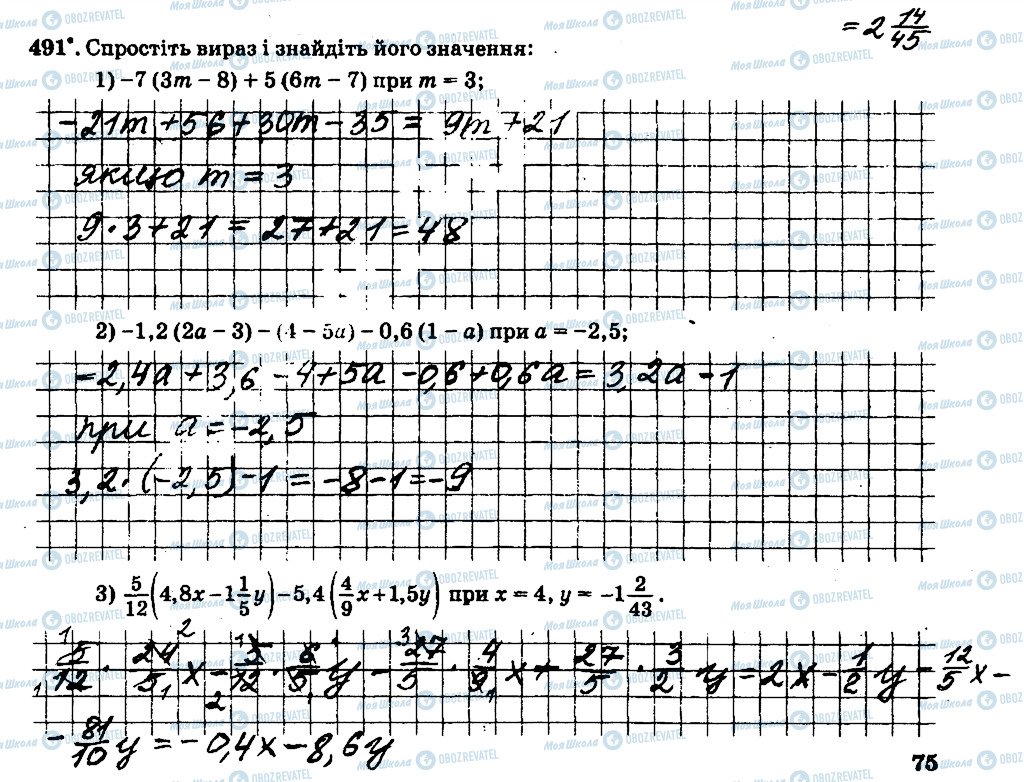 = 2 14/45
491°. Спростіть вираз і знайдіть його значення:
1) −7 (3m − 8) + 5 (6m − 7) при m = 3;
−21m + 56 + 30m − 35 = 9m + 21
якщо m = 3
9 · 3 + 21 = 27 + 21 = 48
2) −1,2 (2a − 3) − (4 − 5a) − 0,6 (1 − a) при a = −2,5;
−2,4a + 3,6 − 4 + 5a − 0,6 + 0,6a = 3,2a − 1
при a = −2,5
3,2 · (−2,5) − 1 = −8 − 1 = −9
3) 5/12 (4,8x − 1 1/5 y) − 5,4 (4/9 x + 1,5y) при x = 4, y = −1 2/43 .
5/12 · 24/5 x − 5/12 · 6/5 y − 27/5 · 4/9 x + 27/5 · 3/2 y = 2x − 1/2 y − 12/5 x −
− 81/10 y = −0,4x − 8,6y
75
Моя Школа OBOZREVATEL